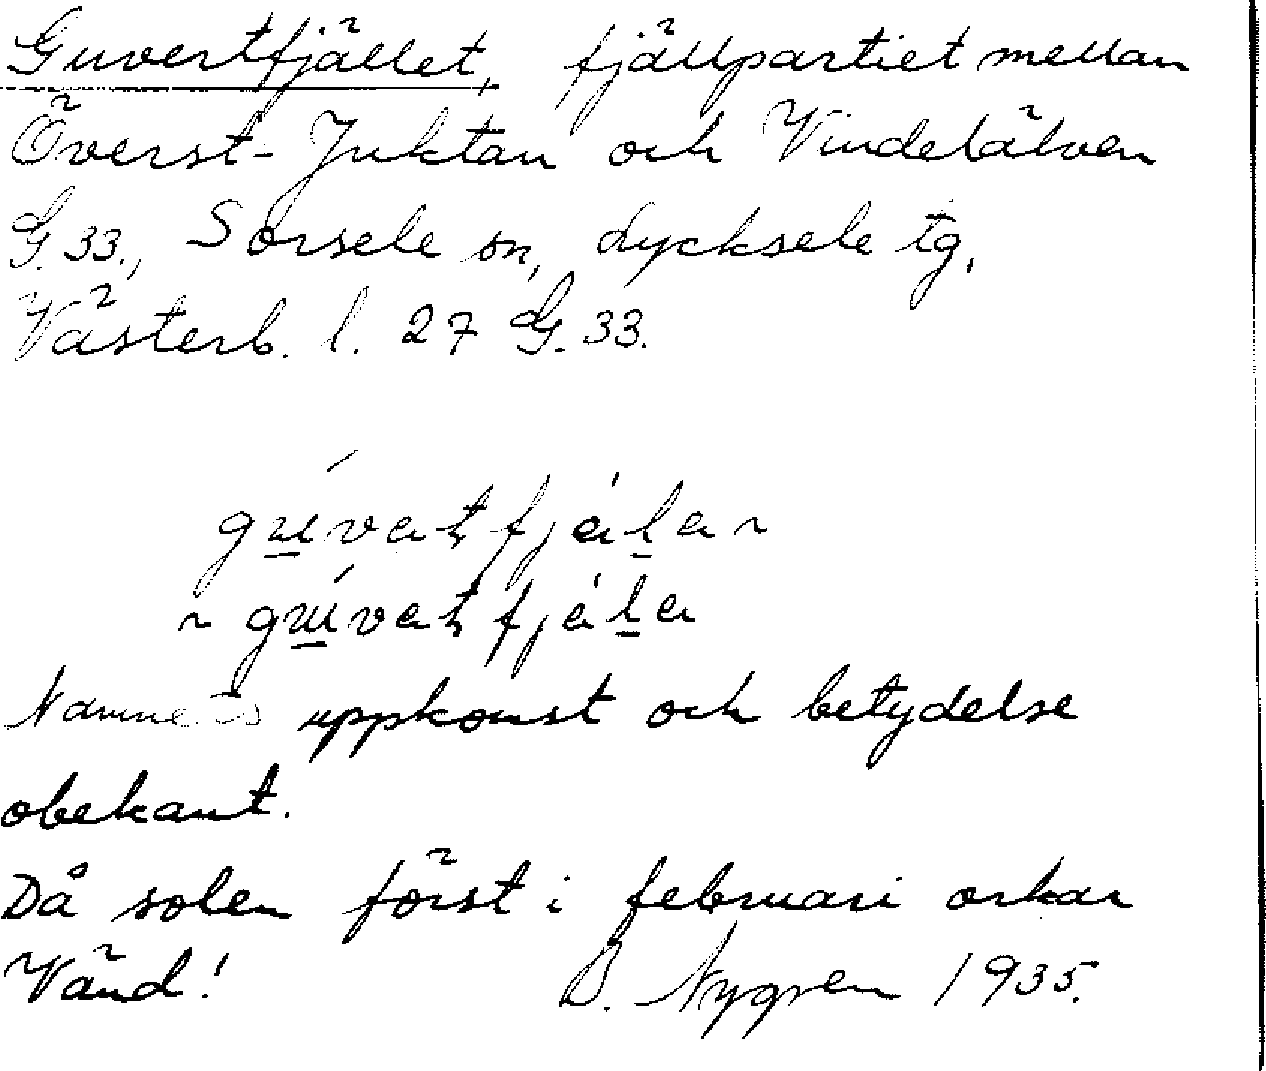 Guvertfjället, fjällpartiet mellan
Överst-Juktan och Vindelälven
G. 33., Sorsele sn, Lycksele tg,
Västerb. l. 27 G. 33.
Namnets uppkomst och betydelse
obekant.
Då solen först i februari orkar
Vänd! B. Nygren 1935.